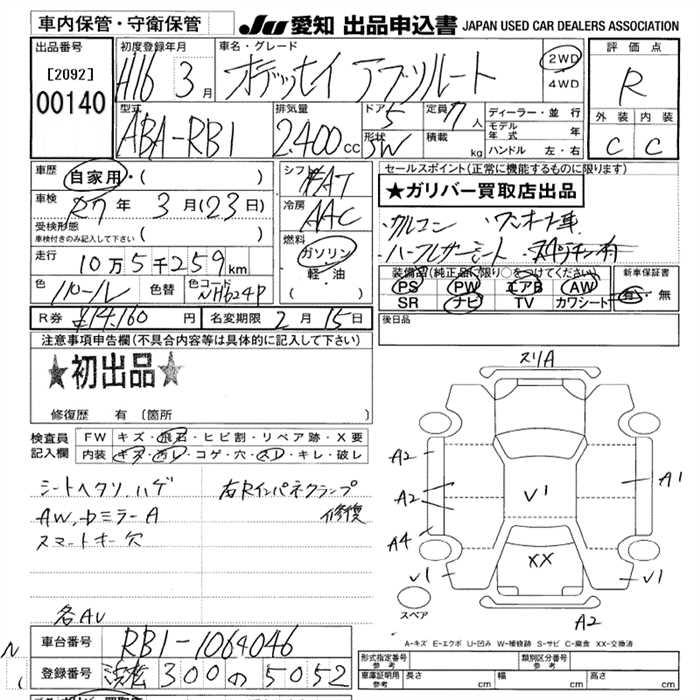 車内保管・守衛保管
JU 愛知 出品申込書 JAPAN USED CAR DEALERS ASSOCIATION
出品番号
[2092]
00140
初度登録年月
H16 3 月
車名・グレード
オデッセイ アブソルート
2WD
4WD
評価点
R
外装 内装
C C
型式
ABA-RB1
排気量
2,400 cc
ドア
5
形状
SW
定員
7 人
積載
kg
ディーラー・並行
モデル年式 年
ハンドル 左・右
車歴
自家用・( )
車検
R7 年 3 月(23日)
受検形態
車検付きのみ記入して下さい ( )
走行
10万5千259 km
色
パール
色替
色コード
NH624P
シフト
FAT
冷房
AAC
燃料
ガソリン
・軽・油
( )
セールスポイント(正常に機能するものに限ります)
★ガリバー買取店出品
カルコン ワンオーナー車
ハーフレザーシート
装備品(純正品に限り○をつけてください)
PS PW エアB AW
SR ナビ TV カワシート
新車保証書
有・無
R券 ¥14,160 円
名変期限 2 月 15 日
後日品
注意事項申告欄(不具合内容等は具体的に記入して下さい)
★初出品★
修復歴 有 (箇所 )
検査員記入欄
FW キズ・飛石・ヒビ割・リペア跡・X要
内装 キズ・汚レ・コゲ・穴・スレ・キレ・破レ
シートヘタリ、ハゲ
AW、ドミラーA
スマートキー欠
右Rインパネクランプ
修復
各AU
スリA
A2
A2
A4
V1
V1
XX
A1
V1
A2
スペア
A-キズ E-エクボ U-凹み W-補修跡 S-サビ C-腐食 XX-交換済
車台番号 RB1-1064046
登録番号 浜松 300 の 5052
形式指定番号
参考
類別区分番号
参考
車庫証明用
参考
長さ cm
幅 cm
高さ cm